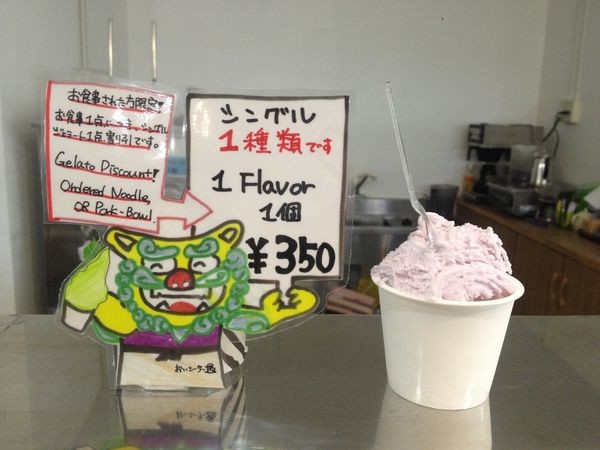 お食事された方限定!
お食事1点につき、シングル
ジェラート1点割引です。
Gelato Discount!
Ordered Noodle,
OR Pork-Bowl.
シングル
1種類です
1 Flavor
1個
¥350